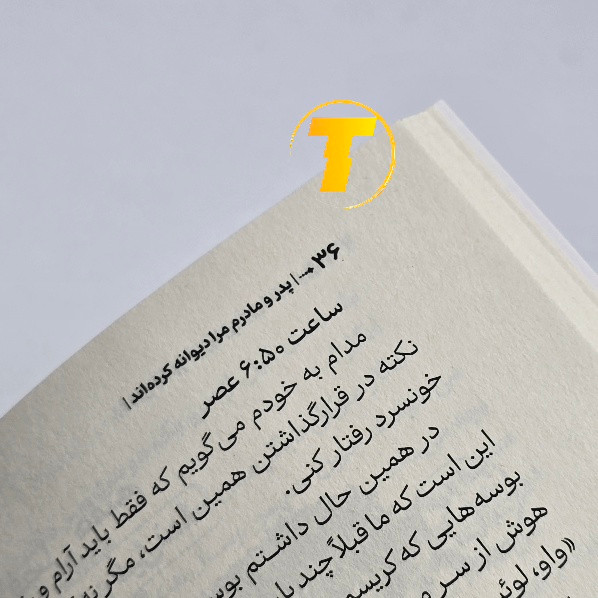 T
۳۶ ⇠ | پدر و مادرم مرا دیوانه کرده‌اند |
ساعت ۶:۵۰ عصر
مدام به خودم می‌گویم که فقط باید آرام و
نکته در قرار گذاشتن همین است، مگر نه
خونسرد رفتار کنی.
در همین حال داشتم
این است که ما قبلاً چند
بوسه‌هایی که کریسـ
هوش از سر
«واو، لوئـ